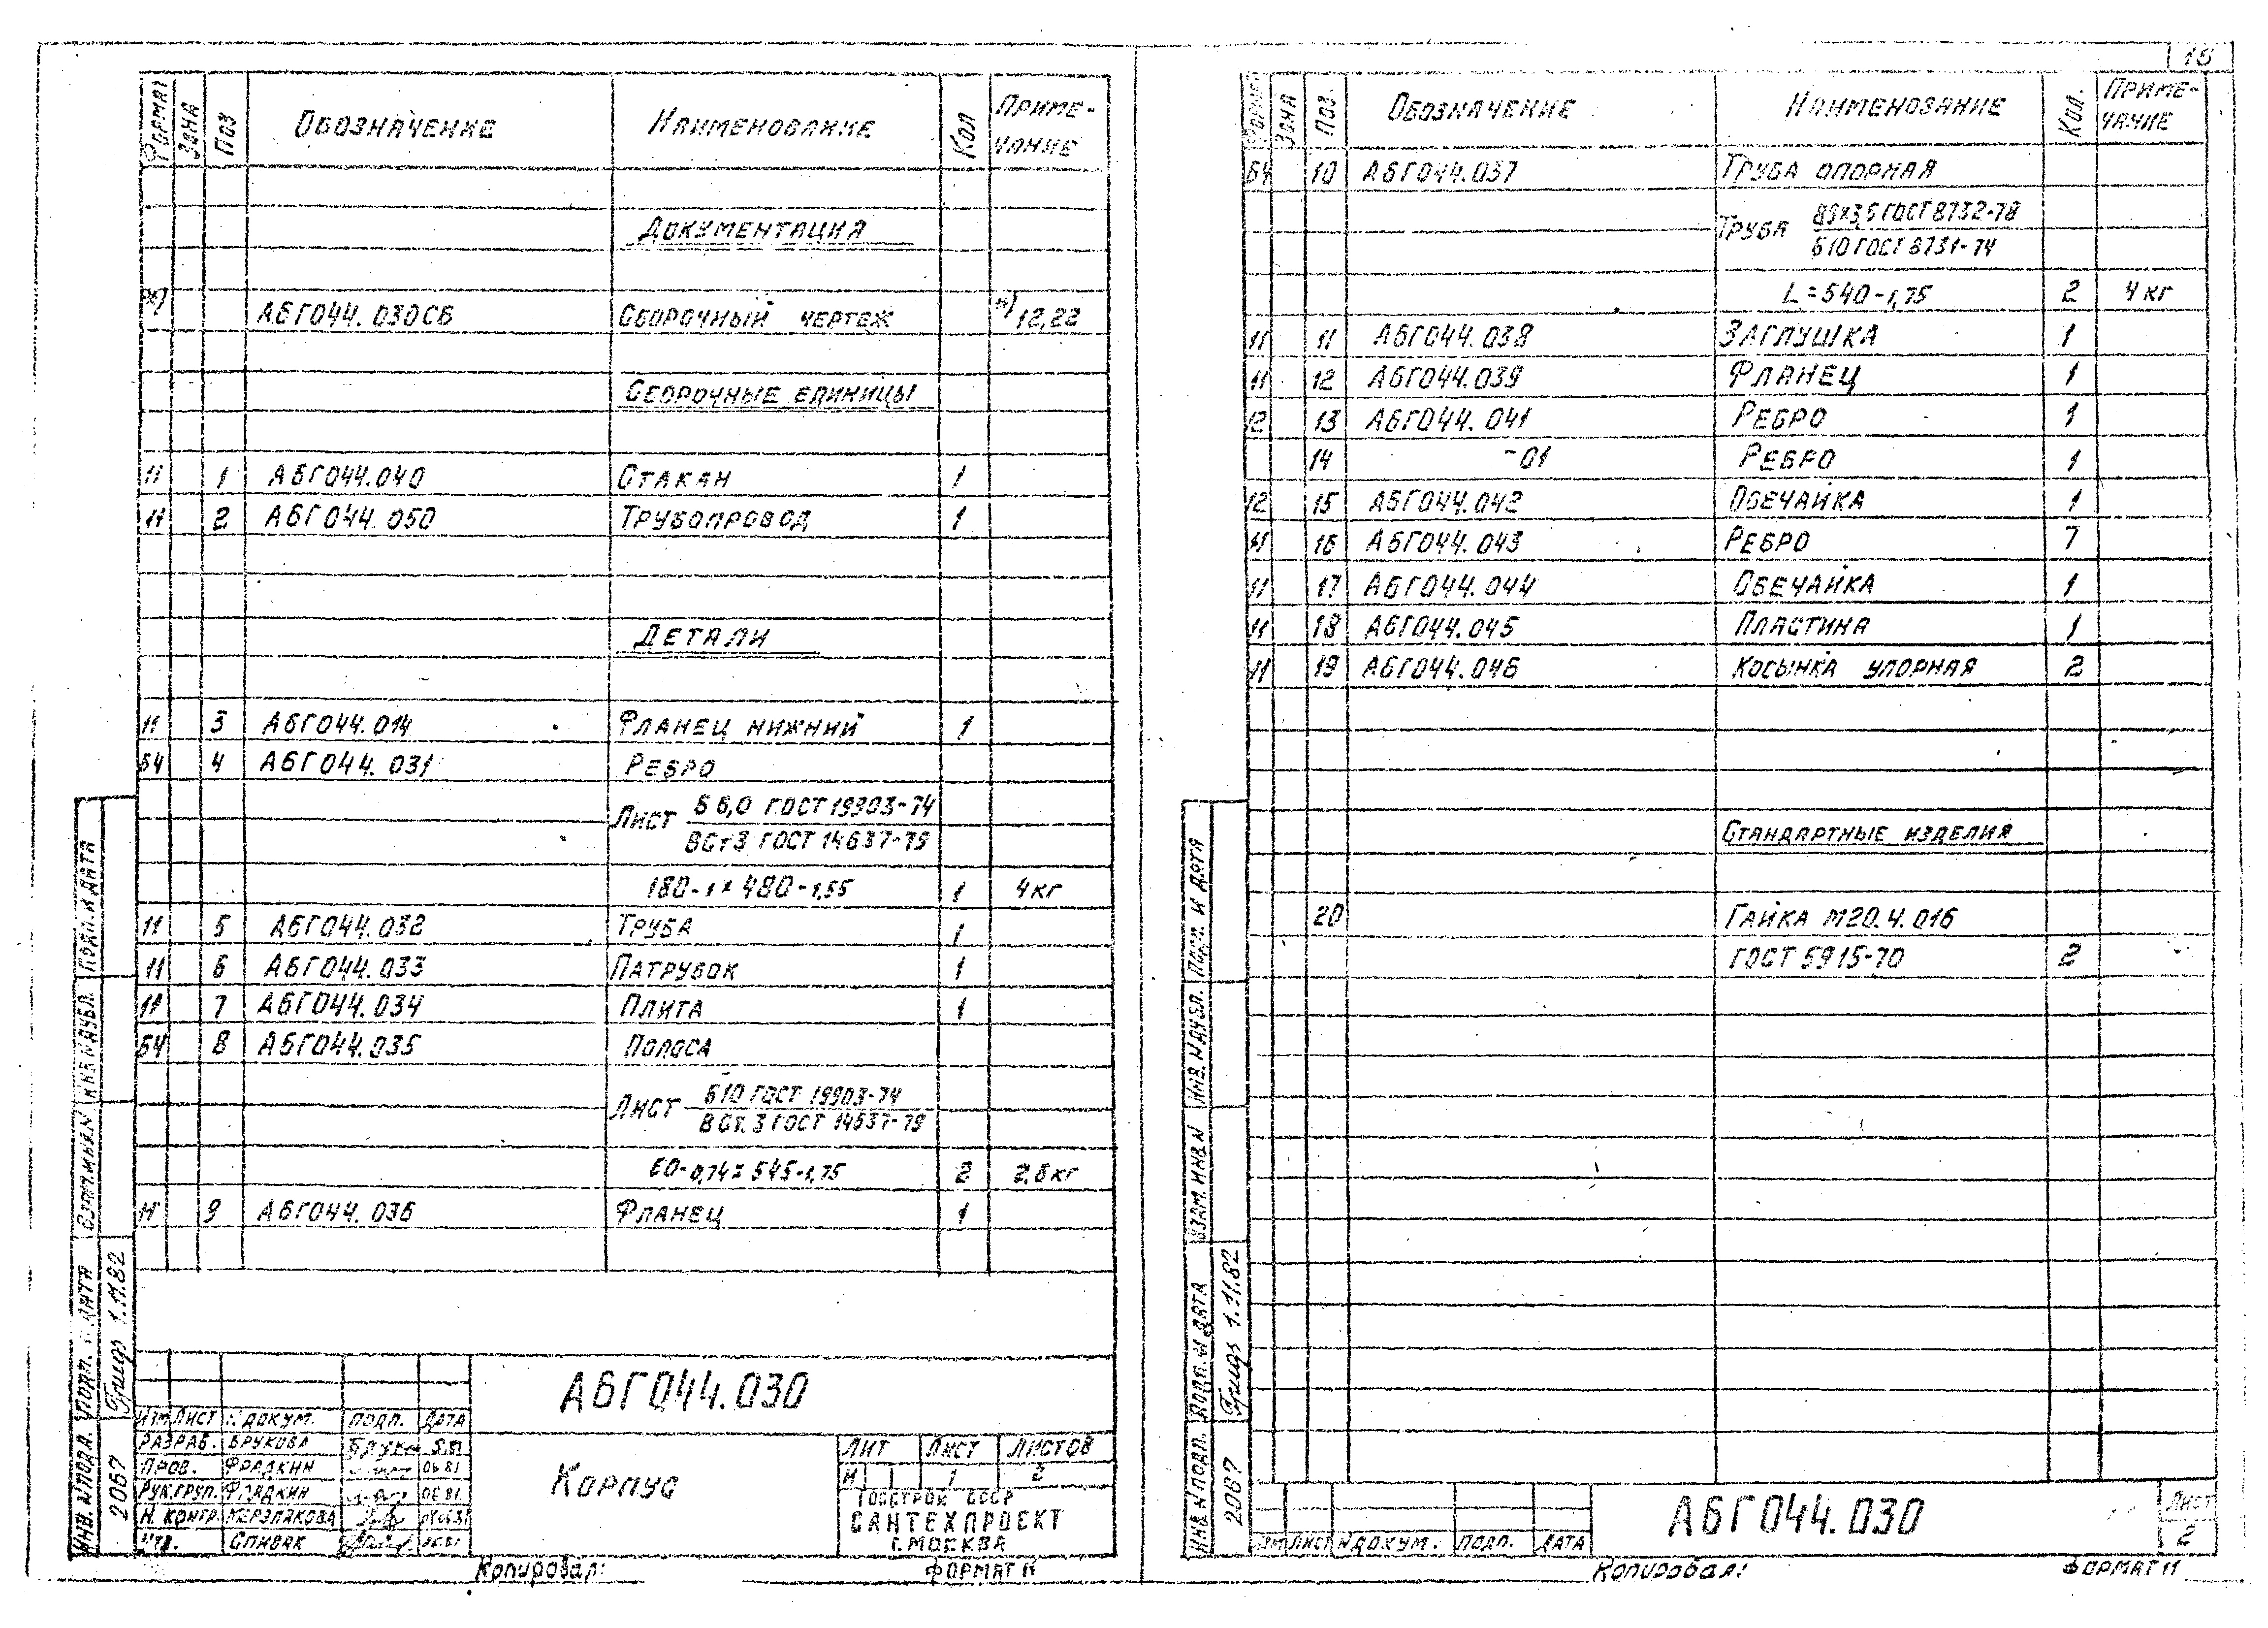 Формат Зона Поз Обозначение Наименование Кол Приме-
чание
Документация
*) А6Г044.030СБ Сборочный чертеж *) 12,22
Сборочные единицы
11 1 А6Г044.040 Стакан 1
11 2 А6Г044.050 Трубопровод 1
Детали
11 3 А6Г044.014 Фланец нижний 1
БЧ 4 А6Г044.031 Ребро
Лист Б 6,0 ГОСТ 19903-74
ВСт3 ГОСТ 14637-79
180-1 х 480-1,55 1 4 кг
11 5 А6Г044.032 Труба 1
11 6 А6Г044.033 Патрубок 1
11 7 А6Г044.034 Плита 1
БЧ 8 А6Г044.035 Полоса
Лист Б10 ГОСТ 19903-74
ВСт.3 ГОСТ 14637-79
60-0,74 х 545-1,75 2 2,6 кг
11 9 А6Г044.036 Фланец 1
Инв. N подл. Подп. и дата Взам. инв. N Инв. N дубл. Подп. и дата
2067 1.11.82
А6Г044.030
Изм Лист N докум. Подп. Дата
Разраб. Брукова 5.81
Пров. Фрадкин 06 81
Рук.груп. Фрадкин 06 81
Н. контр.
Утв. Спивак
Корпус
Лит Лист Листов
И 1 2
Госстрой СССР
САНТЕХПРОЕКТ
г. Москва
Копировал: Формат 11
16
Формат Зона Поз. Обозначение Наименование Кол. Приме-
чание
БЧ 10 А6Г044.037 Труба опорная
Труба 89х3,5 ГОСТ 8732-78
Б10 ГОСТ 8731-74
L=540-1,75 2 4 кг
11 11 А6Г044.038 Заглушка 1
11 12 А6Г044.039 Фланец 1
12 13 А6Г044.041 Ребро 1
14 -01 Ребро 1
12 15 А6Г044.042 Обечайка 1
11 16 А6Г044.043 Ребро 7
11 17 А6Г044.044 Обечайка 1
11 18 А6Г044.045 Пластина 1
11 19 А6Г044.046 Косынка упорная 2
Стандартные изделия
20 Гайка М20.4.016
ГОСТ 5915-70 2
Инв. N подл. Подп. и дата Взам. инв. N Инв. N дубл. Подп. и дата
2067 1.11.82
Изм Лист N докум. Подп. Дата
А6Г044.030
Лист
2
Копировал: Формат 11